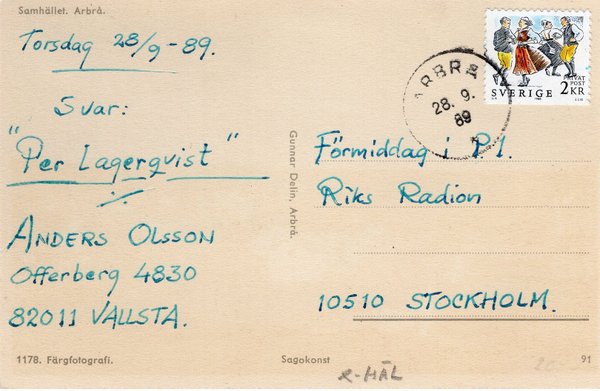 Samhället. Arbrå.
Torsdag 28/9-89.
Svar:
"Per Lagerqvist"
ANDERS OLSSON
Offerberg 4830
82011 VALLSTA.
1178. Färgfotografi.
Gunnar Delin, Arbrå.
ARBRÅ
28. 9.
89
PRIVAT
POST
SVERIGE 2KR
Förmiddag i P.1.
Riks Radion
10510 STOCKHOLM.
Sagokonst
91
R-HÄL